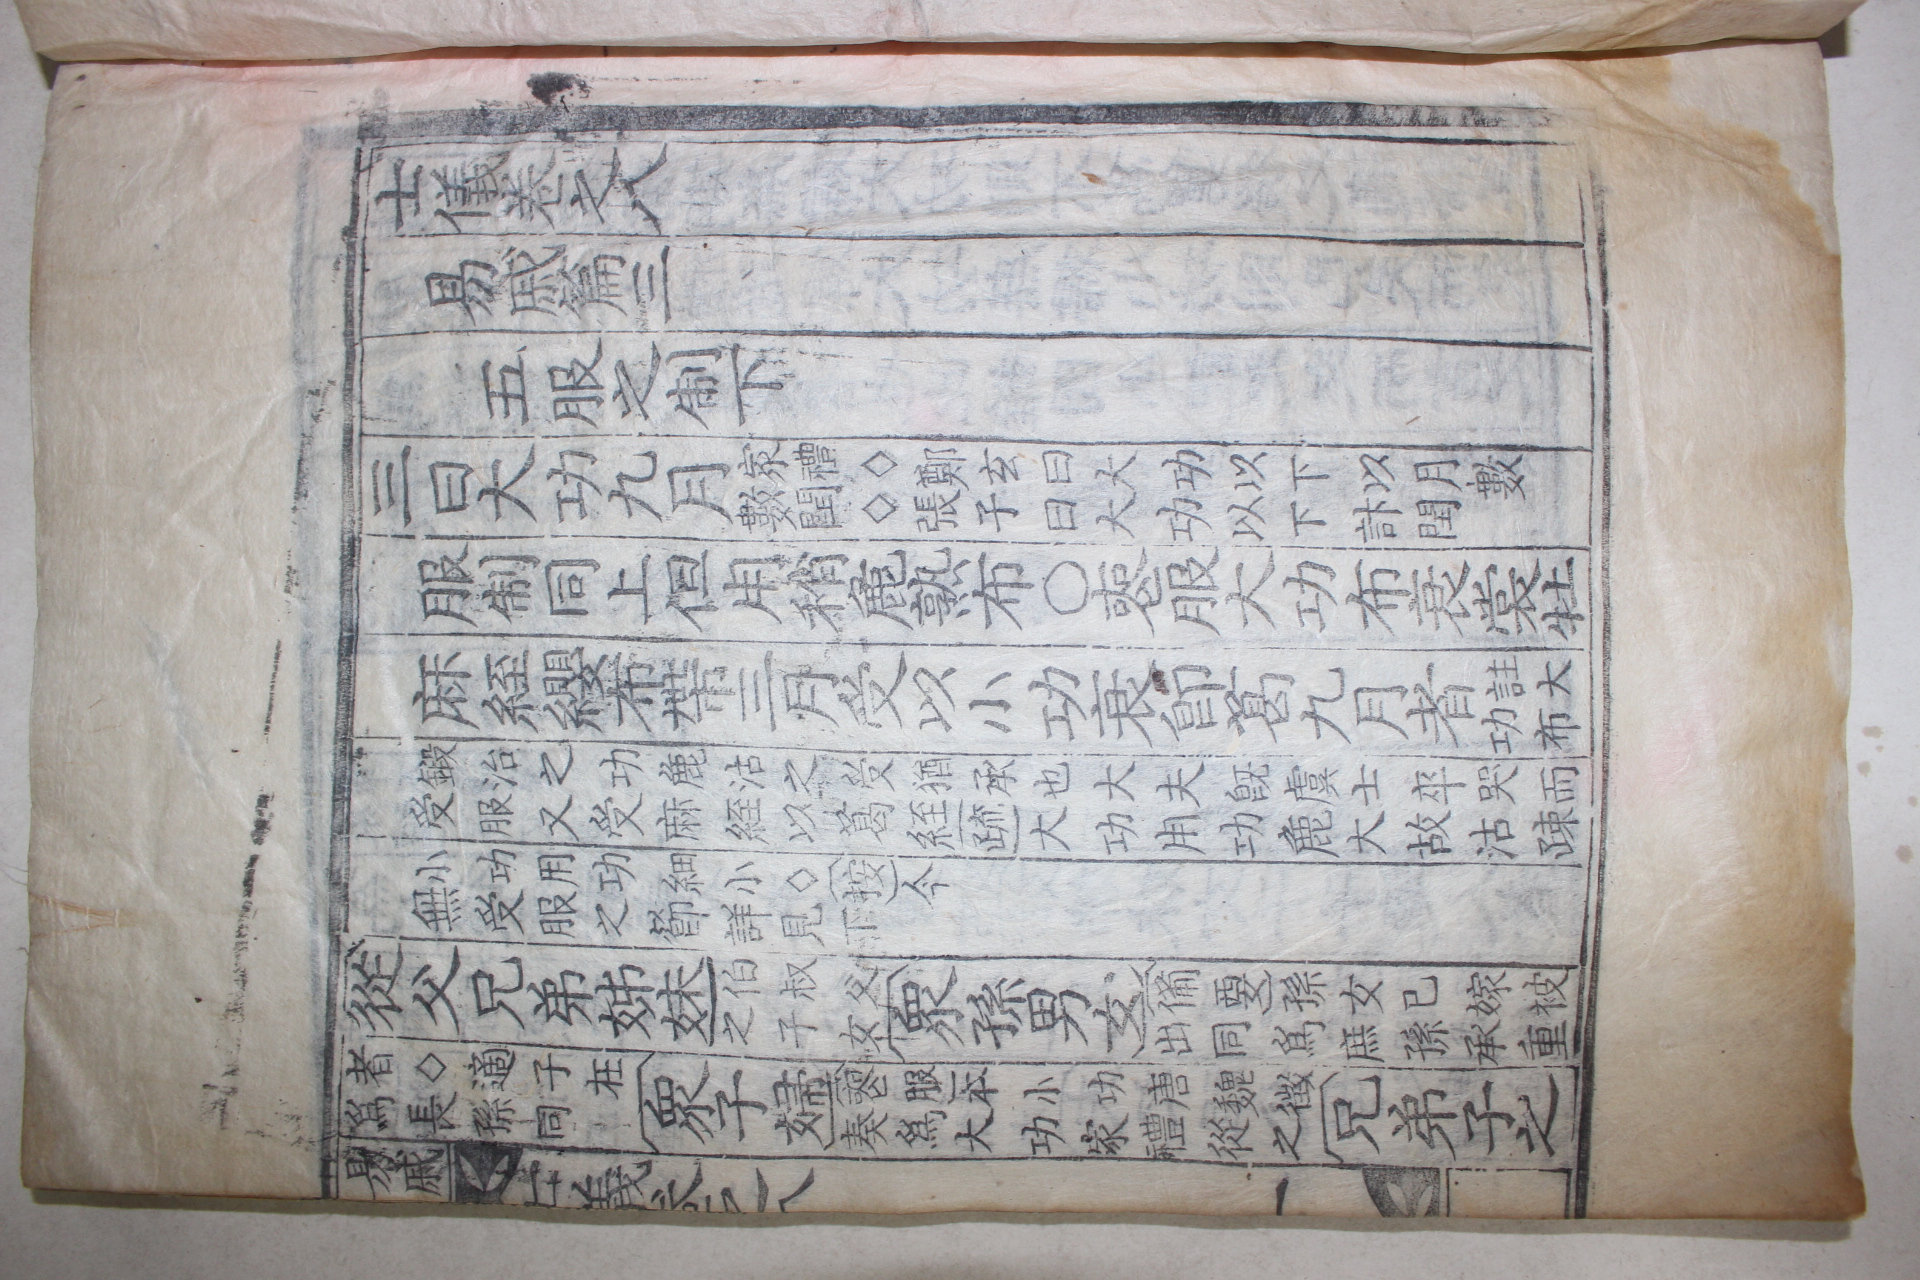 士儀卷之八
易戚篇三
五服之制下
三曰大功九月家禮◇鄭玄曰大功以下以月數數閏◇張子曰大功以下計閏
服制同上但用稍麁熟布○喪服大功布衰裳牡
麻絰纓布帶三月受以小功衰卽葛九月者註大功布
鍛治之功麁沽之受猶承也大夫旣虞士卒哭而受服又受麻絰以葛絰疏大功用功麁大故沽疎
小功用功細小◇按今無受服之節詳見下
從父兄弟姊妹伯叔父之子女衆孫男女備要孫女已嫁被出同爲庶孫承重
者◇適子在爲長孫同衆子婦喪服本小功唐魏徵奏爲大功家禮從之兄弟子之
易戚 士儀卷之八 一